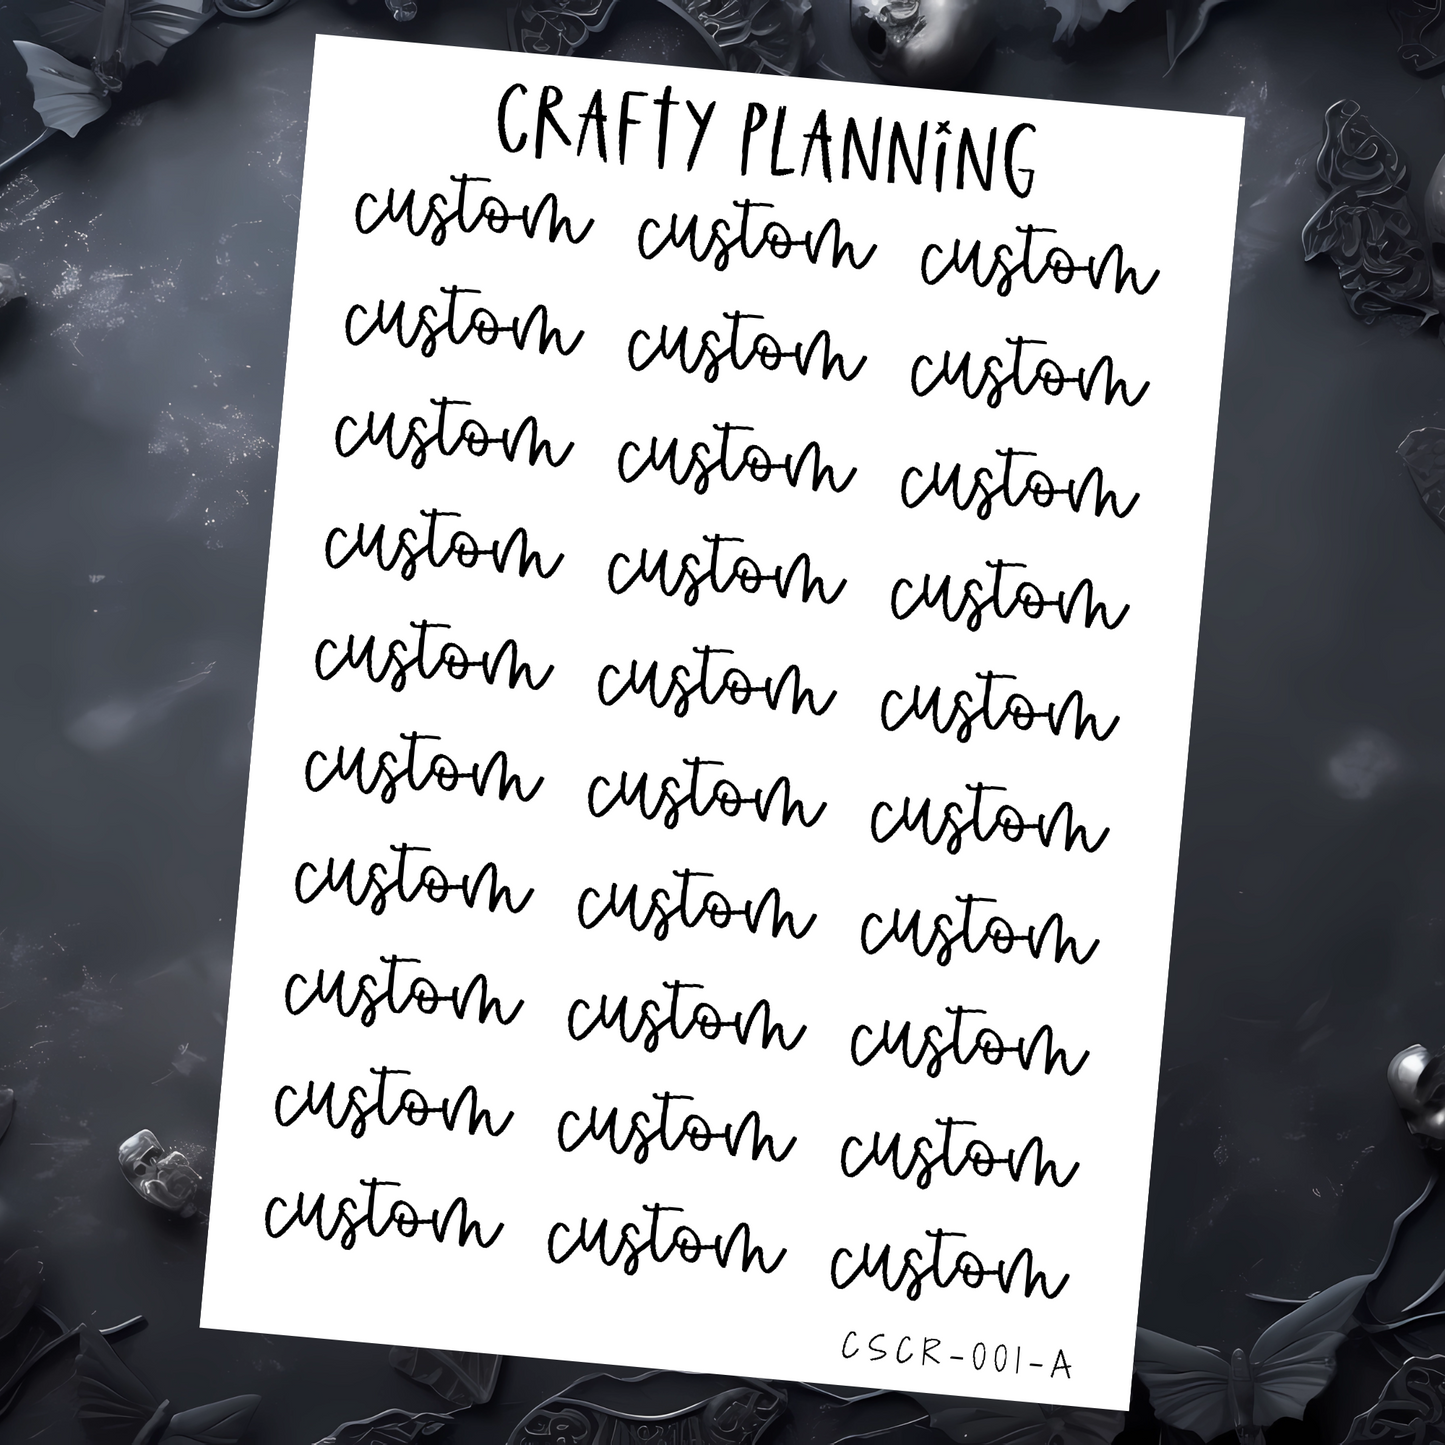 CRAFTY PLANNING
custom custom custom
custom custom custom
custom custom custom
custom custom custom
custom custom custom
custom custom custom
custom custom custom
custom custom custom
custom custom custom
custom custom custom
CSCR-001-A